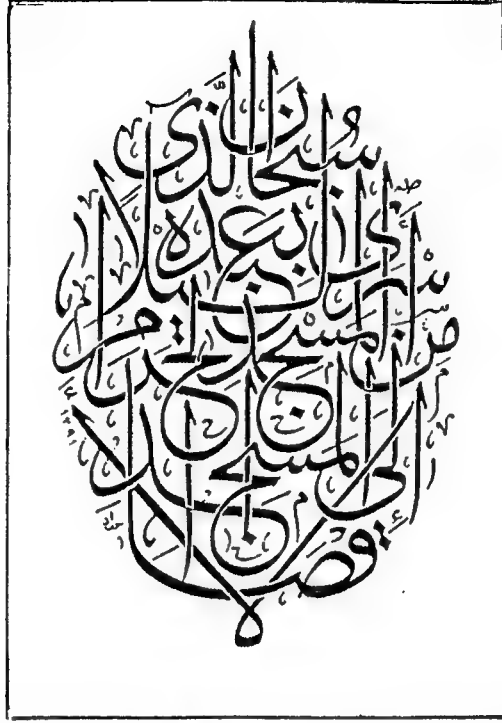 سُبْحَانَ الَّذِي
أَسْرَى بِعَبْدِهِ لَيْلًا
مِنَ الْمَسْجِدِ الْحَرَامِ
إِلَى الْمَسْجِدِ
الْأَقْصَا